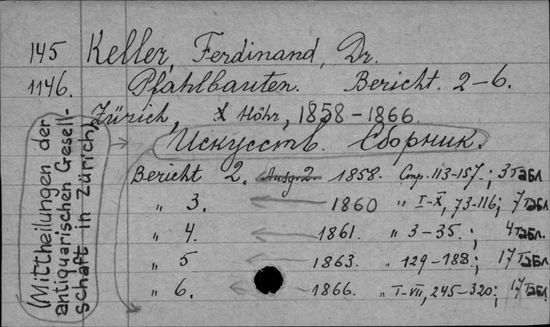 145 Keller, Ferdinand, Dr.
1146. Pfahlbauten. Bericht. 2-6.
Zürich, Höhr, 1858-1866.
Искусств. Сборник.
(Mittheilungen der
antiquarischen Gesell-
schaft in Zürich)
Bericht 2. Ausg. 2. 1858. Стр. 113-157.; 3 табл
" 3. 1860 " I-X, 73-116; 7 табл
" 4. 1861. " 3-35.; 4 табл.
" 5 1863. " 129-188.; 17 табл
" 6. 1866. " I-VII, 245-320; 17 табл